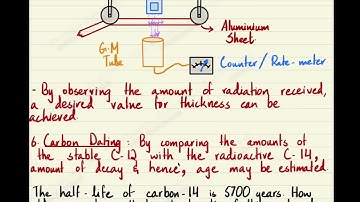 Aluminium
Sheet.
G.M
Tube
Counter / Rate-meter
- By observing the amount of radiation received,
a desired value for thickness can be
achieved.
6. Carbon Dating : By comparing the amounts of
the stable C-12 with the radioactive C-14,
amount of decay & hence, age may be estimated.
The half-life of carbon-14 is 5700 years. How